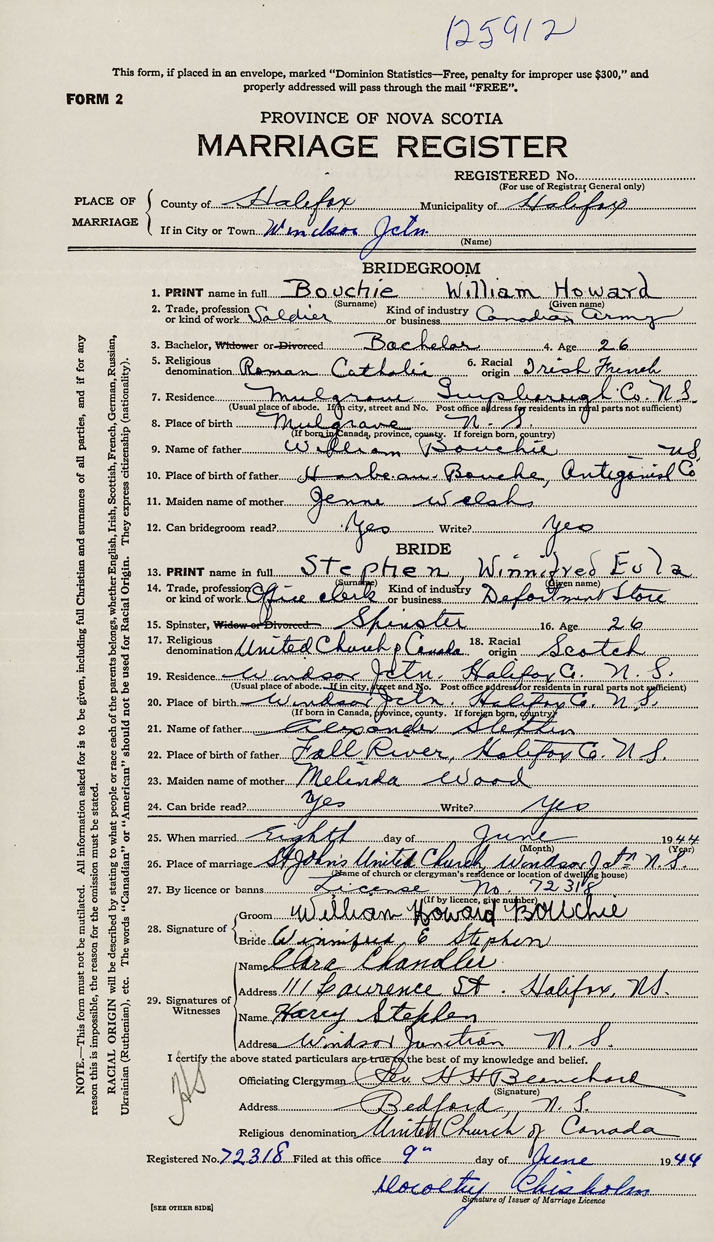 125912
This form, if placed in an envelope, marked "Dominion Statistics—Free, penalty for improper use $300," and
properly addressed will pass through the mail "FREE".
FORM 2
PROVINCE OF NOVA SCOTIA
MARRIAGE REGISTER
REGISTERED No.
(For use of Registrar General only)
PLACE OF MARRIAGE
County of Halifax Municipality of Halifax
If in City or Town Windsor Jctn.
(Name)
BRIDEGROOM
1. PRINT name in full Bouchie William Howard
(Surname) (Given name)
2. Trade, profession or kind of work Soldier Kind of industry or business Canadian Army
3. Bachelor, Widower or Divorced Bachelor 4. Age 26
5. Religious denomination Roman Catholic 6. Racial origin Irish French
7. Residence Mulgrave Guysborough Co. N.S.
(Usual place of abode. If in city, street and No. Post office address for residents in rural parts not sufficient)
8. Place of birth Mulgrave N. S.
(If born in Canada, province, county. If foreign born, country)
9. Name of father William Bouchie
10. Place of birth of father Harbeau Bouche, Antigonish Co N.S.
11. Maiden name of mother Jenne Welsh
12. Can bridegroom read? Yes Write? Yes
BRIDE
13. PRINT name in full Stephen, Winnifred Eula
(Surname) (Given name)
14. Trade, profession or kind of work Office clerk Kind of industry or business Department Store
15. Spinster, Widow or Divorced Spinster 16. Age 26
17. Religious denomination United Church of Canada 18. Racial origin Scotch
19. Residence Windsor Jctn. Halifax Co. N. S.
(Usual place of abode. If in city, street and No. Post office address for residents in rural parts not sufficient)
20. Place of birth Windsor Jctn. Halifax Co. N. S.
(If born in Canada, province, county. If foreign born, country)
21. Name of father Alexander Stephen
22. Place of birth of father Fall River, Halifax Co. N. S.
23. Maiden name of mother Melinda Wood
24. Can bride read? Yes Write? Yes
25. When married Eighth day of June 1944
(Month) (Year)
26. Place of marriage St Johns United Church, Windsor Jctn N. S.
(Name of church or clergyman's residence or location of dwelling house)
27. By licence or banns License No. 72318
(If by licence, give number)
28. Signature of
Groom William Howard Bouchie
Bride Winnifred E Stephen
29. Signatures of Witnesses
Name Clara Chandler
Address 111 Lawrence St. Halifax, N.S.
Name Harry Stephen
Address Windsor Junction N. S.
I certify the above stated particulars are true to the best of my knowledge and belief.
Officiating Clergyman Rev. H H Blanchard
(Signature)
Address Bedford, N. S.
Religious denomination United Church of Canada
Registered No. 72318 Filed at this office 9" day of June 1944
Dorothy Chisholm
Signature of Issuer of Marriage Licence
[SEE OTHER SIDE]
NOTE.—This form must not be mutilated. All information asked for is to be given, including full Christian and surnames of all parties, and if for any
reason this is impossible, the reason for the omission must be stated.
RACIAL ORIGIN will be described by stating to what people or race each of the parents belongs, whether English, Irish, Scottish, French, German, Russian,
Ukrainian (Ruthenian), etc. The words "Canadian" or "American" should not be used for Racial Origin. They express citizenship (nationality).